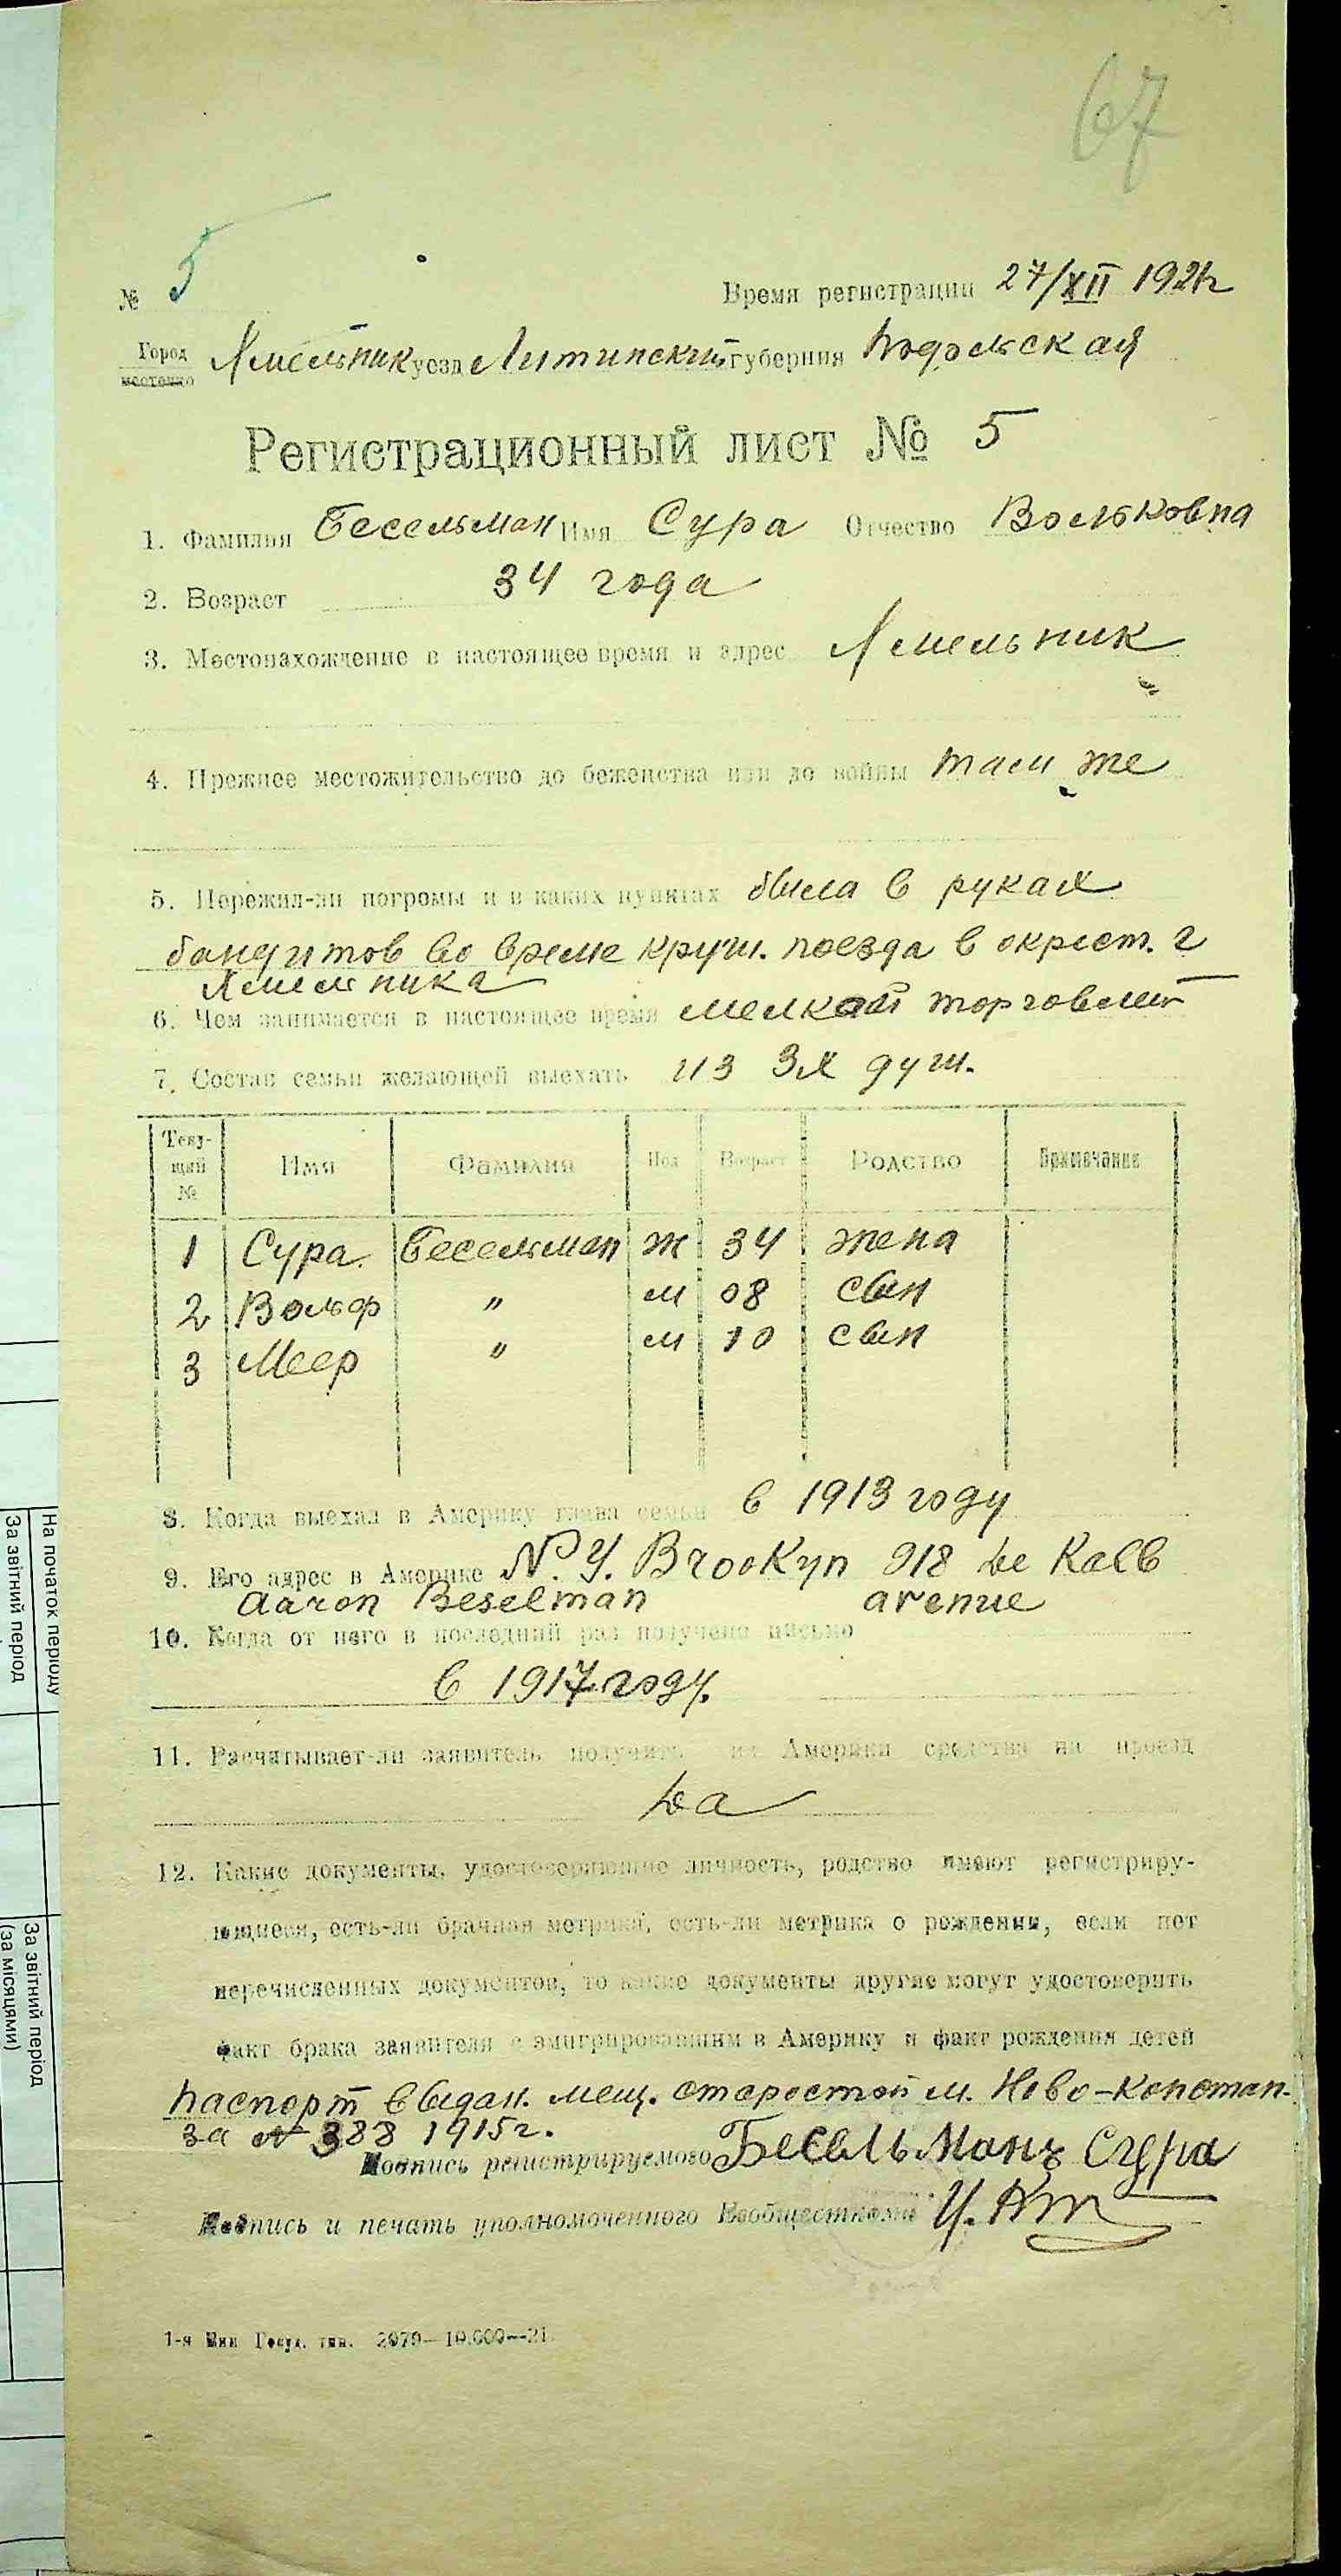 67
№ 5
Время регистрации 27/XII 1921г
Город
местечко Хмельник уезд Литинский губерния Подольская
Регистрационный лист № 5
1. Фамилия Бесельман Имя Сура Отчество Вольковна
2. Возраст 34 года
3. Местонахождение в настоящее время и адрес Хмельник
4. Прежнее местожительство до беженства или до войны там же
5. Пережил-ли погромы и в каких пунктах была в руках
бандитов во время круш. поезда в окрест. г
Хмельника
6. Чем занимается в настоящее время мелкой торговлей
7. Состав семьи желающей выехать из 3х душ.
Теку-
щий
№ Имя Фамилия Пол Возраст Родство Примечание
1 Сура Бесельман ж 34 жена
2 Вольф " м 08 сын
3 Меер " м 10 сын
8. Когда выехал в Америку глава семьи в 1913 году
9. Его адрес в Америке N. Y. Brookyn 918 De Kalb
Aaron Beselman avenue
10. Когда от него в последний раз получено письмо
в 1917 году.
11. Расчитывает-ли заявитель получить из Америки средства на проезд
Да
12. Какие документы, удостоверяющие личность, родство имеют регистриру-
ющиеся, есть-ли брачная метрика, есть-ли метрика о рождении, если нет
перечисленных документов, то какие документы другие могут удостоверить
факт брака заявителя с эмигрировавшим в Америку и факт рождения детей
Паспорт выдан. мещ. старостой м. Ново-Констан.
за № 388 1915г.
Подпись регистрируемого Бесельманъ Сура
Подпись и печать уполномоченного Евобщесткома
1-я Вин Госуд. тип. 2079—10.000—21.
На початок періоду
За звітний період
За звітний період
(за місяцями)